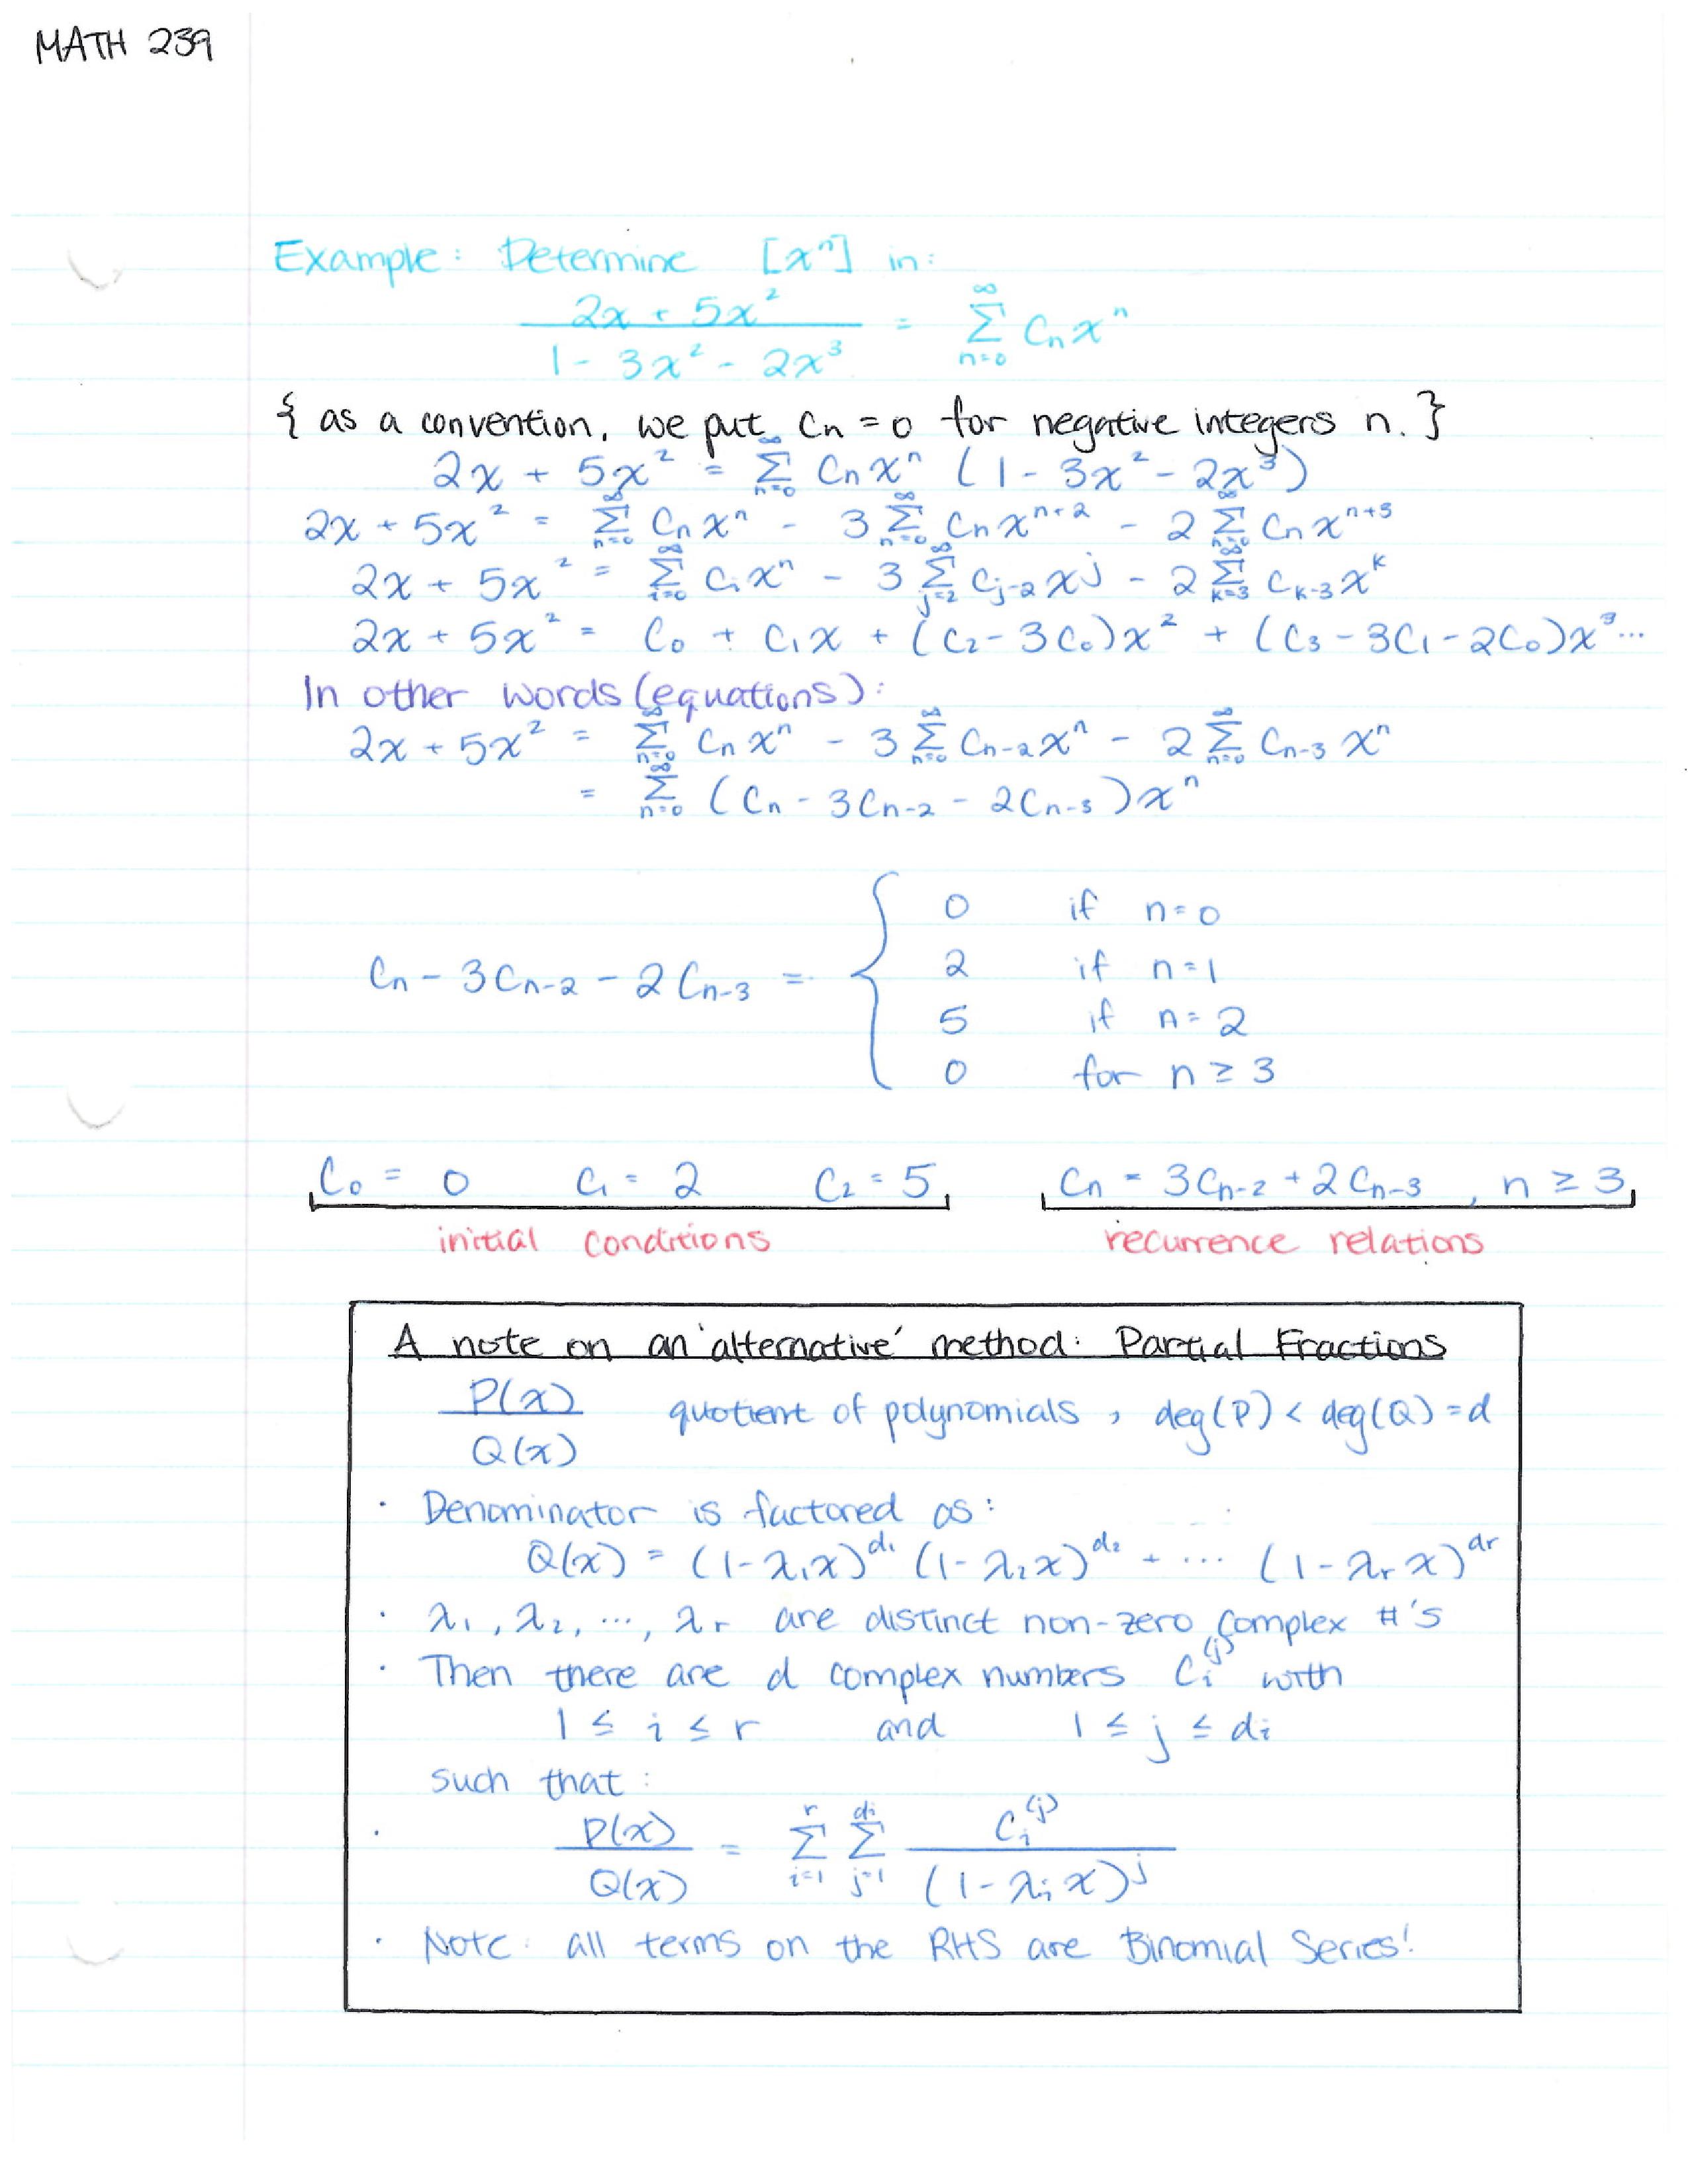 MATH 239
Example: Determine [xⁿ] in:
2x + 5x² / 1 - 3x² - 2x³ = ∑_{n=0}^{∞} Cₙxⁿ
{ as a convention, we put Cₙ = 0 for negative integers n. }
2x + 5x² = ∑_{n=0}^{∞} Cₙxⁿ (1 - 3x² - 2x³)
2x + 5x² = ∑_{n=0}^{∞} Cₙxⁿ - 3 ∑_{n=0}^{∞} Cₙxⁿ⁺² - 2 ∑_{n=0}^{∞} Cₙxⁿ⁺³
2x + 5x² = ∑_{i=0}^{∞} Cᵢxⁿ - 3 ∑_{j=2}^{∞} C_{j-2}x^j - 2 ∑_{k=3}^{∞} C_{k-3}x^k
2x + 5x² = C₀ + C₁x + (C₂ - 3C₀)x² + (C₃ - 3C₁ - 2C₀)x³...
In other words (equations):
2x + 5x² = ∑_{n=0}^{∞} Cₙxⁿ - 3 ∑_{n=0}^{∞} C_{n-2}xⁿ - 2 ∑_{n=0}^{∞} C_{n-3}xⁿ
= ∑_{n=0}^{∞} (Cₙ - 3C_{n-2} - 2C_{n-3})xⁿ
Cₙ - 3C_{n-2} - 2C_{n-3} = {
0 if n=0
2 if n=1
5 if n=2
0 for n ≥ 3
C₀ = 0 C₁ = 2 C₂ = 5 Cₙ = 3C_{n-2} + 2C_{n-3}, n ≥ 3
initial conditions recurrence relations
A note on an 'alternative' method: Partial Fractions
P(x) / Q(x) quotient of polynomials, deg(P) < deg(Q) = d
· Denominator is factored as:
Q(x) = (1-λ₁x)^{d₁} (1-λ₂x)^{d₂} + ... (1-λᵣx)^{dᵣ}
· λ₁, λ₂, ..., λᵣ are distinct non-zero complex #'s
· Then there are d complex numbers Cᵢ^{(j)} with
1 ≤ i ≤ r and 1 ≤ j ≤ dᵢ
such that:
· P(x) / Q(x) = ∑_{i=1}^{r} ∑_{j=1}^{dᵢ} Cᵢ^{(j)} / (1-λᵢx)^j
· Note: all terms on the RHS are Binomial Series!